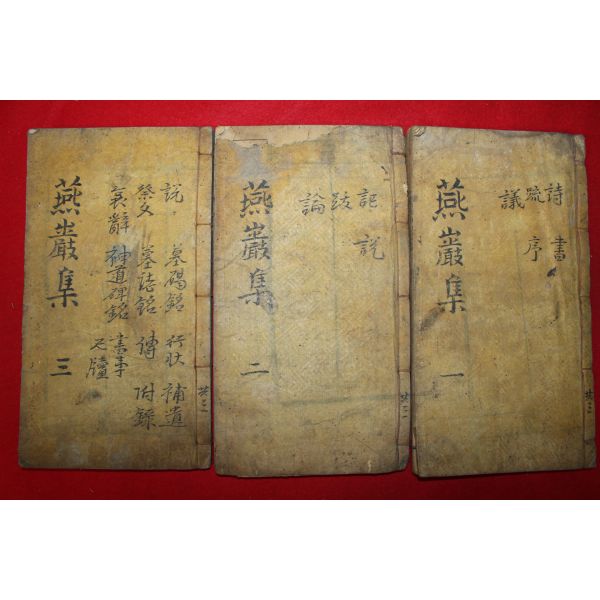 燕巖集 一
詩 書
疏 序
議
共三
燕巖集 二
記 說
跋
論
共三
燕巖集 三
說 墓碣銘 行狀 補遺
祭文 墓誌銘 傳 附錄
哀辭 神道碑銘 書事
尺牘
共三